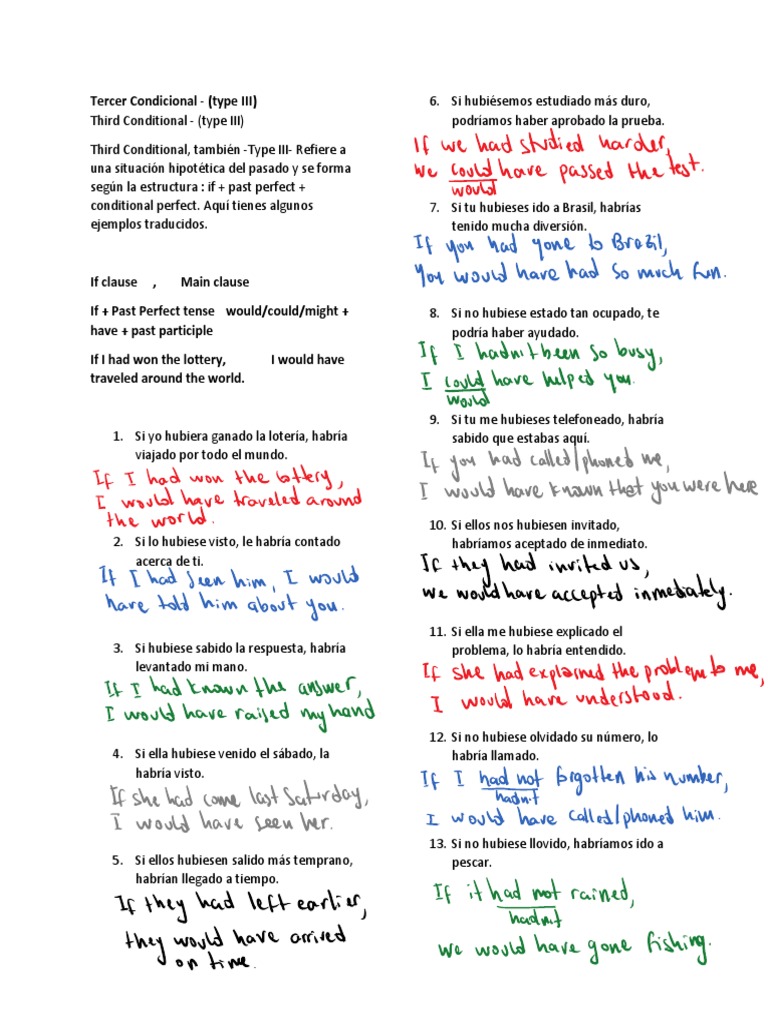 Tercer Condicional - (type III)
Third Conditional - (type III)
Third Conditional, también -Type III- Refiere a
una situación hipotética del pasado y se forma
según la estructura : if + past perfect +
conditional perfect. Aquí tienes algunos
ejemplos traducidos.
If clause , Main clause
If + Past Perfect tense would/could/might +
have + past participle
If I had won the lottery, I would have
traveled around the world.
1. Si yo hubiera ganado la lotería, habría
viajado por todo el mundo.
If I had won the lottery,
I would have traveled around
the world.
2. Si lo hubiese visto, le habría contado
acerca de ti.
If I had seen him, I would
have told him about you.
3. Si hubiese sabido la respuesta, habría
levantado mi mano.
If I had known the answer,
I would have raised my hand
4. Si ella hubiese venido el sábado, la
habría visto.
If she had come last Saturday,
I would have seen her.
5. Si ellos hubiesen salido más temprano,
habrían llegado a tiempo.
If they had left earlier,
they would have arrived
on time.
6. Si hubiésemos estudiado más duro,
podríamos haber aprobado la prueba.
If we had studied harder,
we could have passed the test.
would
7. Si tu hubieses ido a Brasil, habrías
tenido mucha diversión.
If you had gone to Brazil,
You would have had so much fun.
8. Si no hubiese estado tan ocupado, te
podría haber ayudado.
If I hadn't been so busy,
I could have helped you.
would
9. Si tu me hubieses telefoneado, habría
sabido que estabas aquí.
If you had called/phoned me,
I would have known that you were here
10. Si ellos nos hubiesen invitado,
habríamos aceptado de inmediato.
If they had invited us,
we would have accepted inmediately.
11. Si ella me hubiese explicado el
problema, lo habría entendido.
If she had explained the problem to me,
I would have understood.
12. Si no hubiese olvidado su número, lo
habría llamado.
If I had not forgotten his number,
hadn't
I would have called/phoned him.
13. Si no hubiese llovido, habríamos ido a
pescar.
If it had not rained,
hadn't
we would have gone fishing.